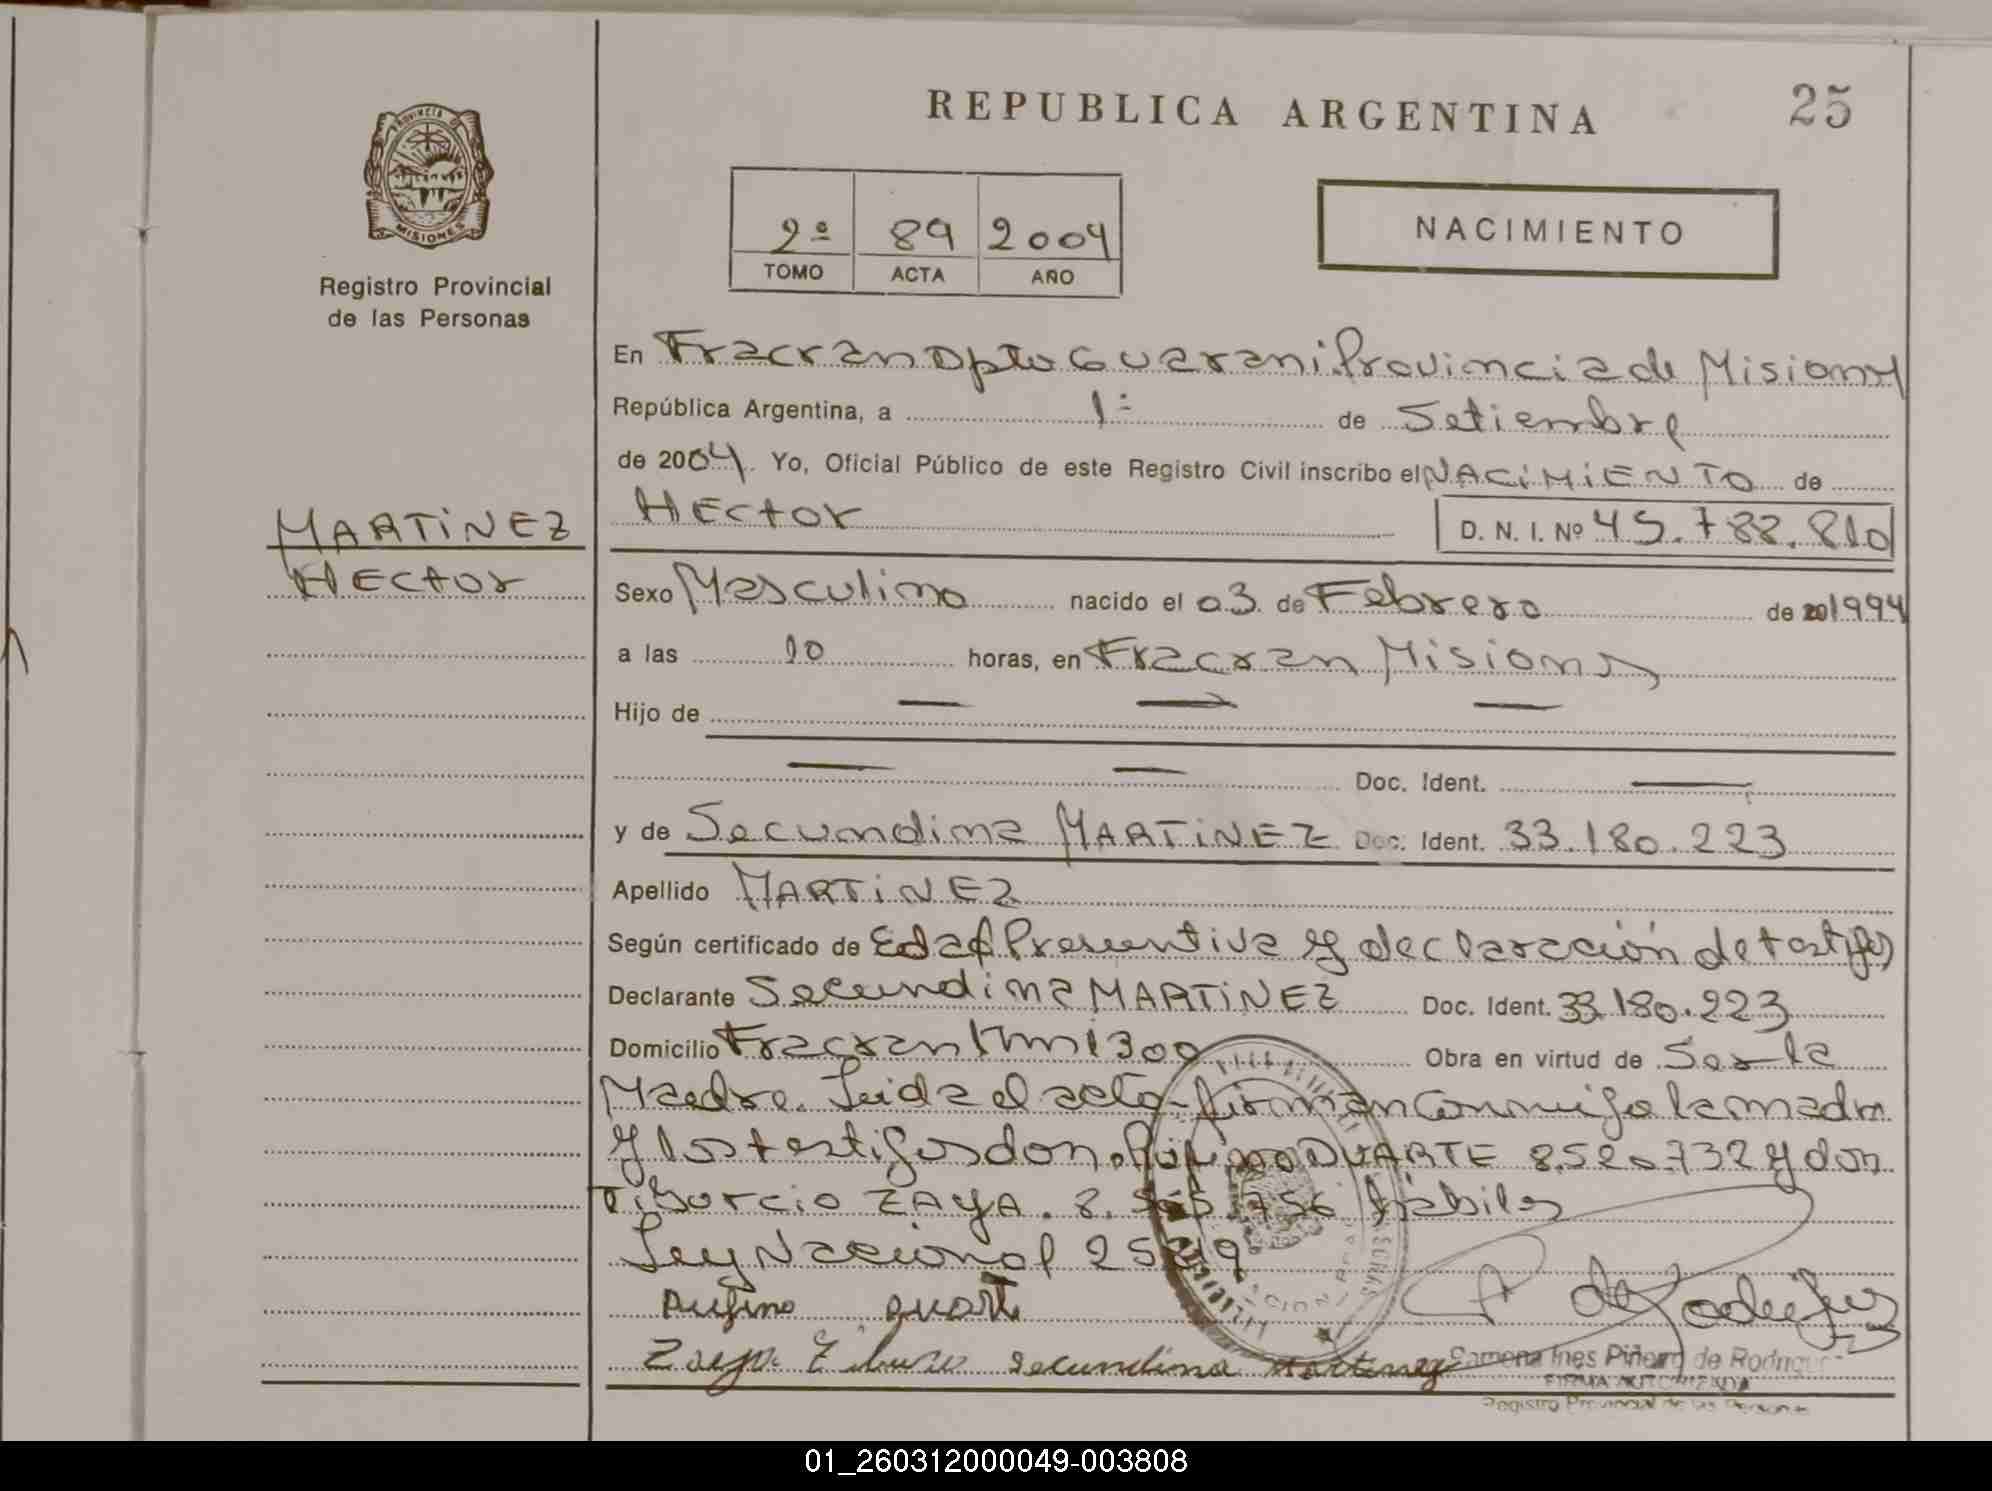 REPUBLICA ARGENTINA
25
PROVINCIA DE
MISIONES
Registro Provincial
de las Personas
2º 89 2004
TOMO ACTA AÑO
NACIMIENTO
En Fracran Dpto Guarani Provincia de Misiones
República Argentina, a 1º de Setiembre
de 2004. Yo, Oficial Público de este Registro Civil inscribo el NACIMIENTO de
HECTOR D. N. I. Nº 45.788.810
MARTINEZ
HECTOR
Sexo Masculino nacido el 03 de Febrero de 201994
a las 10 horas, en Fracran Misiones
Hijo de — — —
— — Doc. Ident. —
y de Secundina MARTINEZ Doc. Ident. 33.180.223
Apellido MARTINEZ
Según certificado de Edad Presuntiva y declaración de testigos
Declarante Secundina MARTINEZ Doc. Ident. 33.180.223
Domicilio Fracran Km 1300 Obra en virtud de Ser la
Madre. Leida el acta firman Conmigo la madre
y los testigos don Rufino DUARTE 8.520.732 y don
Tiburcio ZAYA. 8. 756 hábiles
Ley Nacional
Rufino Duarte
Zaya Secundina Martinez
Ines Piñeiro de Rodriguez
FIRMA AUTORIZADA
Registro Provincial de las Personas
01_260312000049-003808